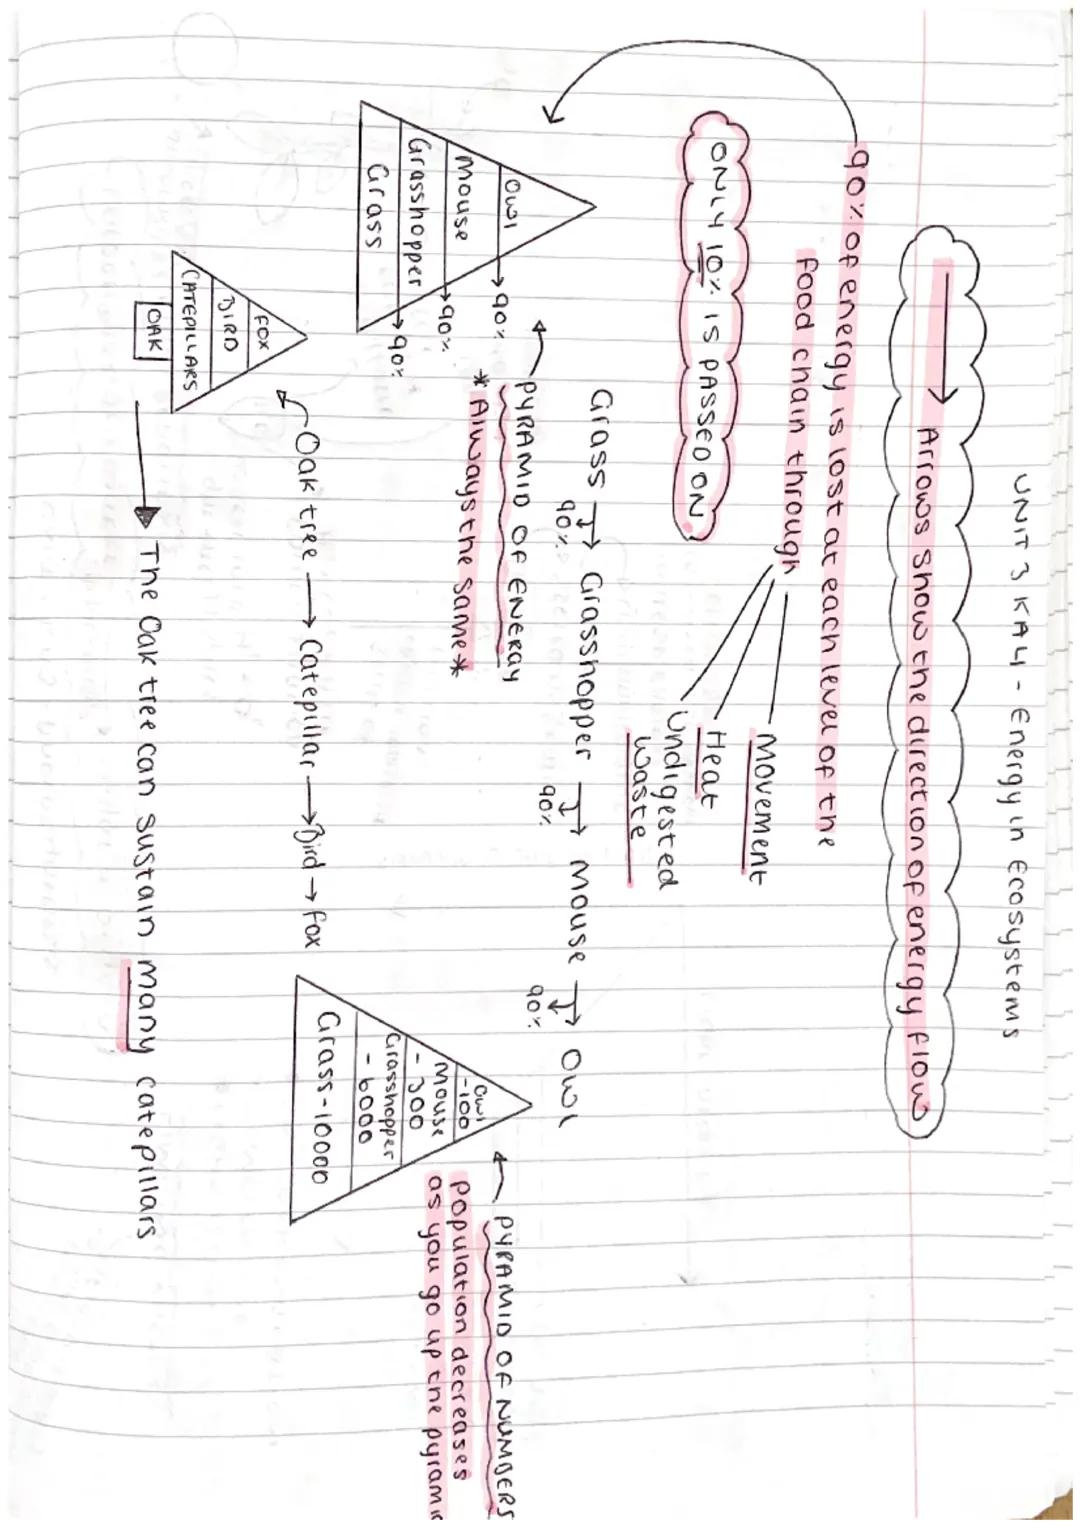 UNIT 3 KA4 - Energy in Ecosystems
Arrows show the direction of energy flow
90% of energy is lost at each level of the
food chain through
Movement
Heat
Undigested
waste
ONLY 10% IS PASSED ON.
Grass → Grasshopper → Mouse → Owl
90%
90%
90%
PYRAMID OF ENERGY
*Always the same*
Owl
Mouse
Grasshopper
Grass
90%
90%
90%
PYRAMID OF NUMBERS
population decreases
as you go up the pyrami
Owl
-100
Mouse
- 300
Grasshopper
- 6000
Grass-10000
Oak tree → Catepillar → Bird → fox
FOX
BIRD
CATEPILLARS
OAK
The Oak tree can sustain many catepillars